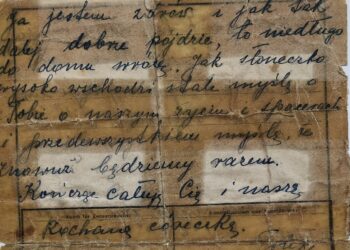 Ja jestem zdrów i jak tak
dalej dobrze pójdzie, to niedługo
do domu wrócę. Jak słoneczko
wysoko wschodzi stale myślę o
Tobie o naszym życiu i spacerach
i przedewszystkiem myślę, że
znowuż będziemy razem.
Kończąc całuję Cię i naszą
Kochaną córeczkę.